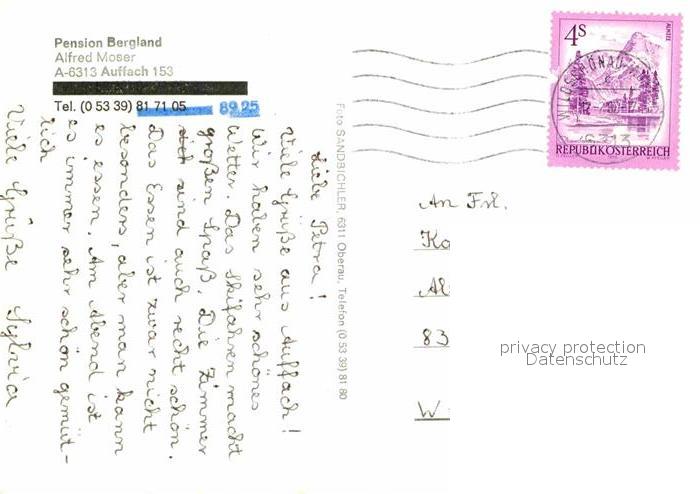 Pension Bergland
Alfred Moser
A-6313 Auffach 153
Tel. (0 53 39) 81 71 05 89 25
Liebe Petra!
Viele Grüße aus Auffach!
Wir haben sehr schönes
Wetter. Das Skifahren macht
großen Spaß. Die Zimmer
sind auch recht schön.
Das Essen ist zwar nicht
besonders, aber man kann
es essen. Am Abend ist
es immer sehr schön gemüt-
lich
Viele Grüße Sylvia
Foto SANDBICHLER, 6311 Oberau, Telefon (0 53 39) 81 80
4S
ALMSEE
REPUBLIK ÖSTERREICH
WILDSCHÖNAU
6313
An Frl.
Ko
Al
83
W
privacy protection
Datenschutz